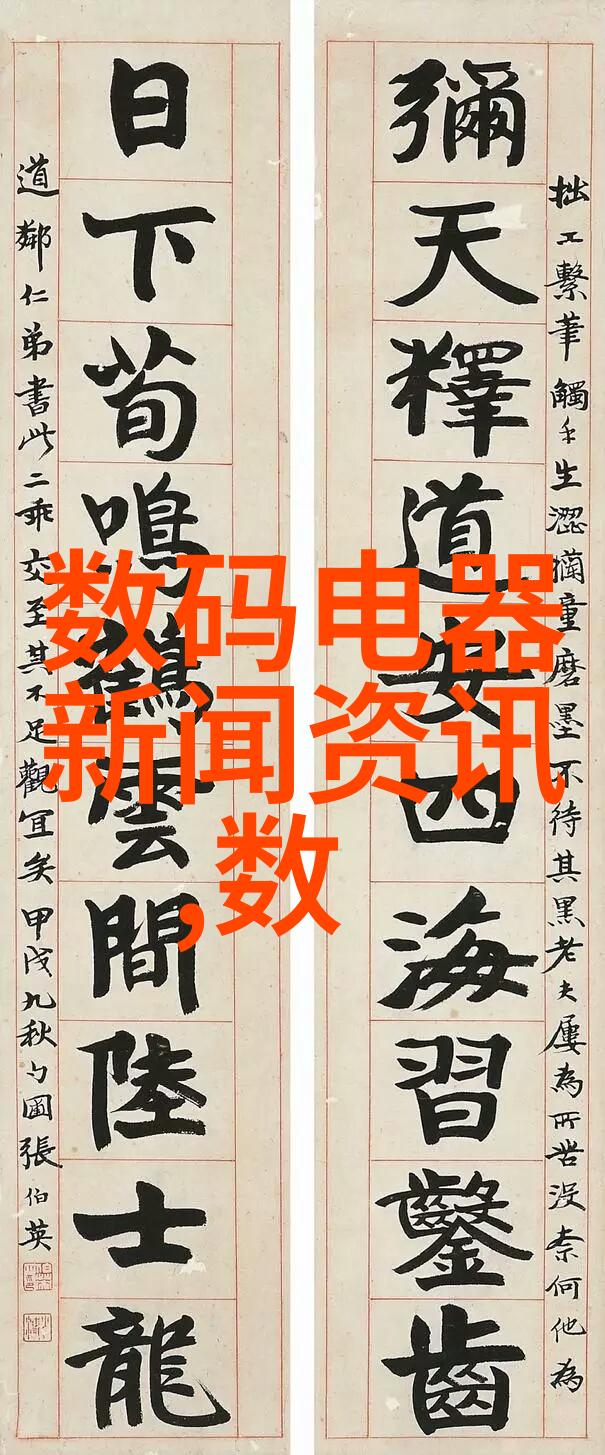 彌天釋道安四海習鑿齒
日下荀鳴鶴雲間陸士龍
拙工繫筆觸手生澀獨童磨墨不待其黑老夫屢為所苦沒柰何他為
道鄰仁弟書此二乖交至其不足觀宜矣甲戌九秋勺圃張伯英
数码电器
新闻资讯
,数